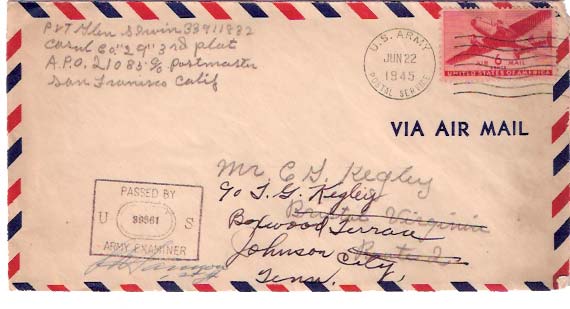 Pvt Glen 33911882
Casul Co "29" 3rd plat
A.P.O. 21085 c/o Postmaster
San Francisco Calif
U.S. ARMY
JUN 22
1945
POSTAL SERVICE
6
AIR MAIL
UNITED STATES OF AMERICA
VIA AIR MAIL
Mr. E G. Kegley
c/o T. G. Kegley
Bristol Virginia
Boxwood Terrace
Route 2
Johnson City,
Tenn.
PASSED BY
U 38561 S
ARMY EXAMINER